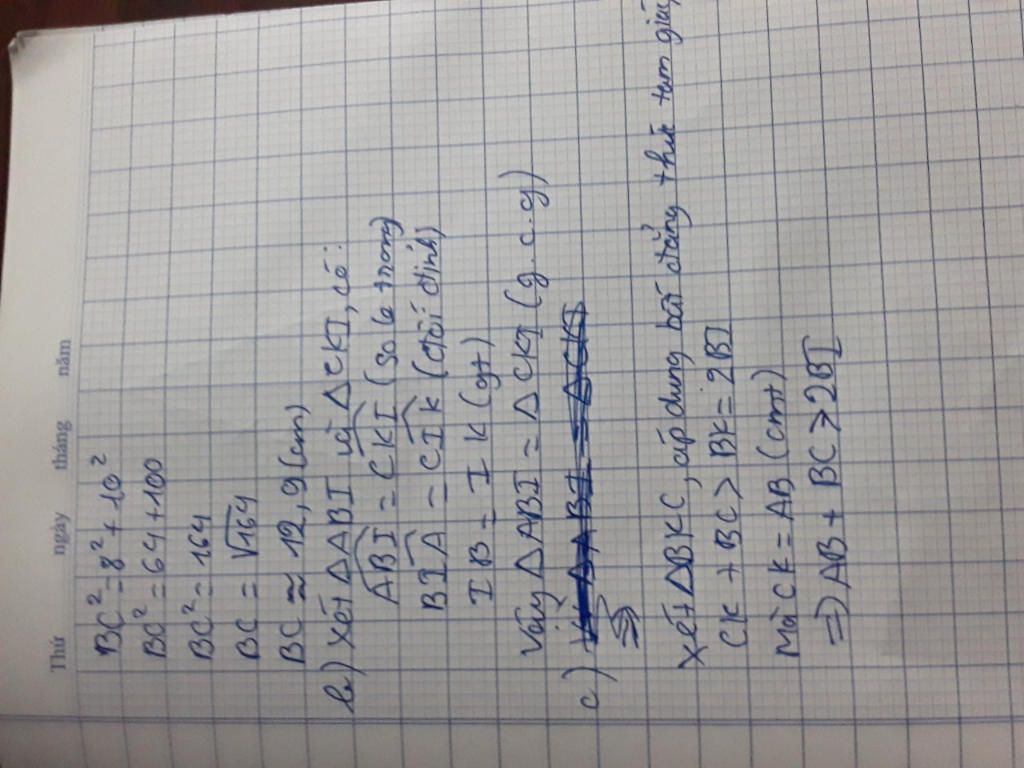 Thứ ngày tháng năm
BC² = 8² + 10²
BC² = 64 + 100
BC² = 164
BC = √164
BC ≈ 12,9 (cm)
b) Xét ΔABI và ΔCKI, có:
ABI = CKI (so le trong)
BIA = CIK (đối đỉnh)
IB = IK (gt)
Vậy ΔABI = ΔCKI (g.c.g)
c)
⇒
Xét ΔBKC, áp dụng bất đẳng thức tam giác
CK + BC > BK = 2BI
Mà CK = AB (cmt)
⇒ AB + BC > 2BI